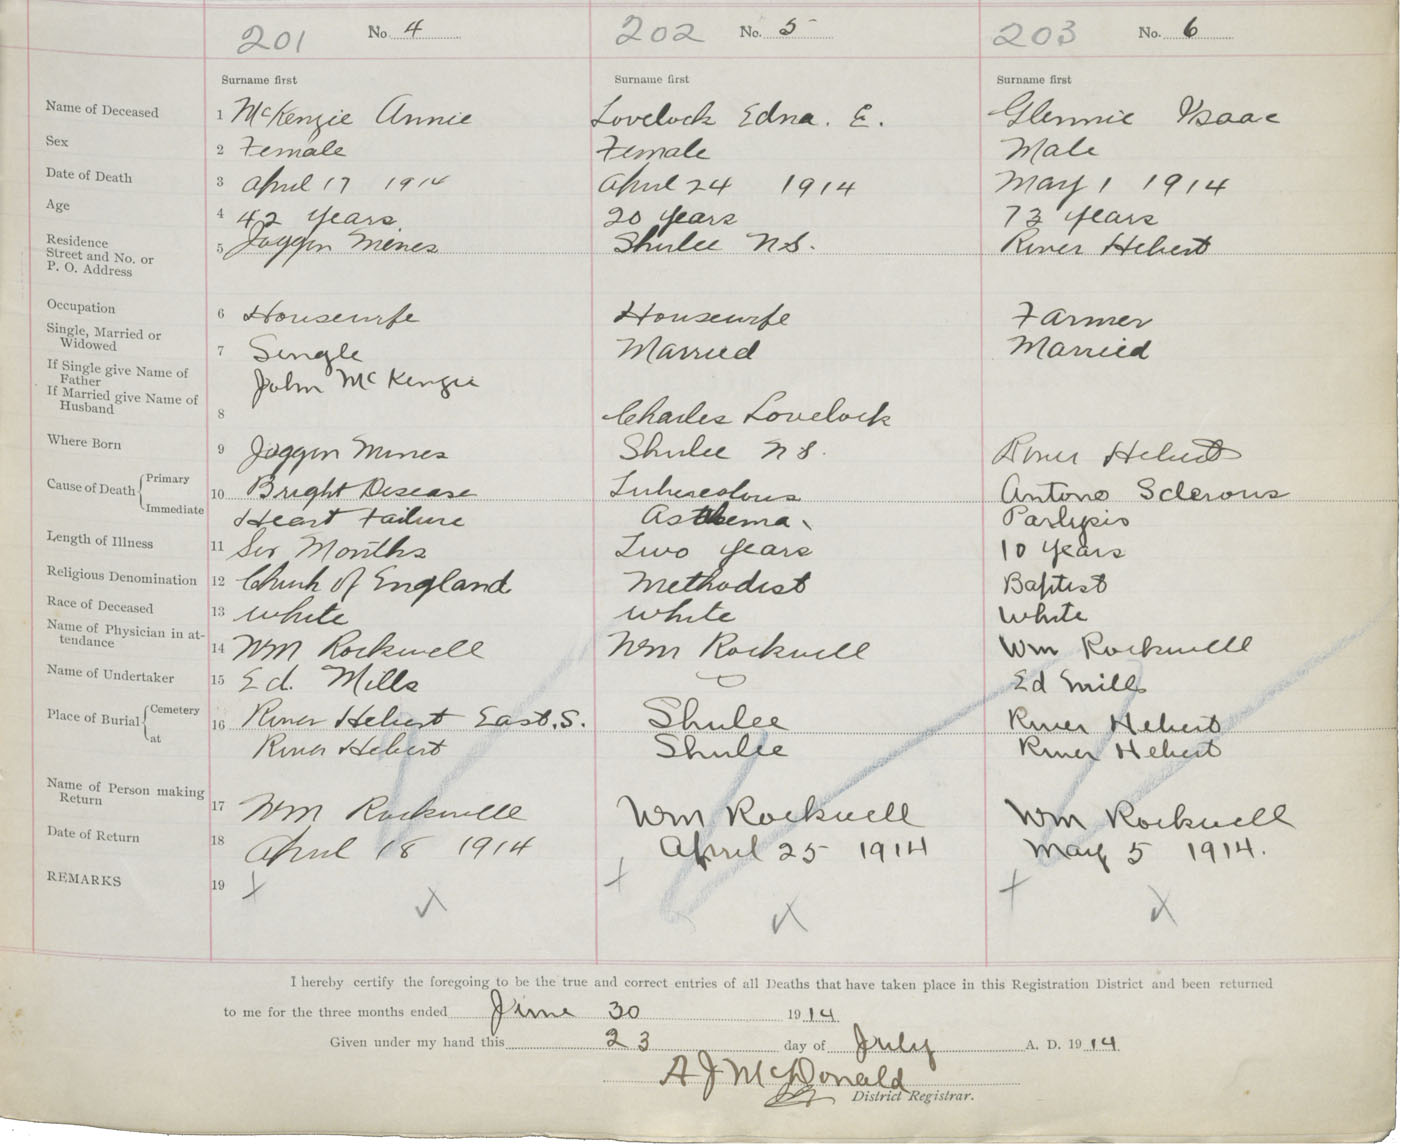 201 No. 4 202 No. 5 203 No. 6
Surname first Surname first Surname first
Name of Deceased 1 McKenzie Annie Lovelock Edna. E. Glennie Isaac
Sex 2 Female Female Male
Date of Death 3 April 17 1914 April 24 1914 May 1 1914
Age 4 42 years 20 years 73 years
Residence Street and No. or P. O. Address 5 Joggin Mines Shulee N.S. River Hebert
Occupation 6 Housewife Housewife Farmer
Single, Married or Widowed 7 Single Married Married
If Single give Name of Father John McKenzie
If Married give Name of Husband 8 Charles Lovelock
Where Born 9 Joggin Mines Shulee N S. River Hebert
Cause of Death Primary 10 Bright Disease Tuberculous Antono Sclerous
Immediate Heart Failure Asthema Parlysis
Length of Illness 11 Six Months Two years 10 years
Religious Denomination 12 Church of England Methodist Baptist
Race of Deceased 13 white white White
Name of Physician in attendance 14 Wm Rockwell Wm Rockwell Wm Rockwell
Name of Undertaker 15 Ed. Mills Ed Mills
Place of Burial Cemetery 16 River Hebert East. S. Shulee River Hebert
at River Hebert Shulee River Hebert
Name of Person making Return 17 Wm Rockwell Wm Rockwell Wm Rockwell
Date of Return 18 April 18 1914 April 25 1914 May 5 1914.
REMARKS 19
I hereby certify the foregoing to be the true and correct entries of all Deaths that have taken place in this Registration District and been returned
to me for the three months ended June 30 1914
Given under my hand this 23 day of July A. D. 1914
A J McDonald
District Registrar.